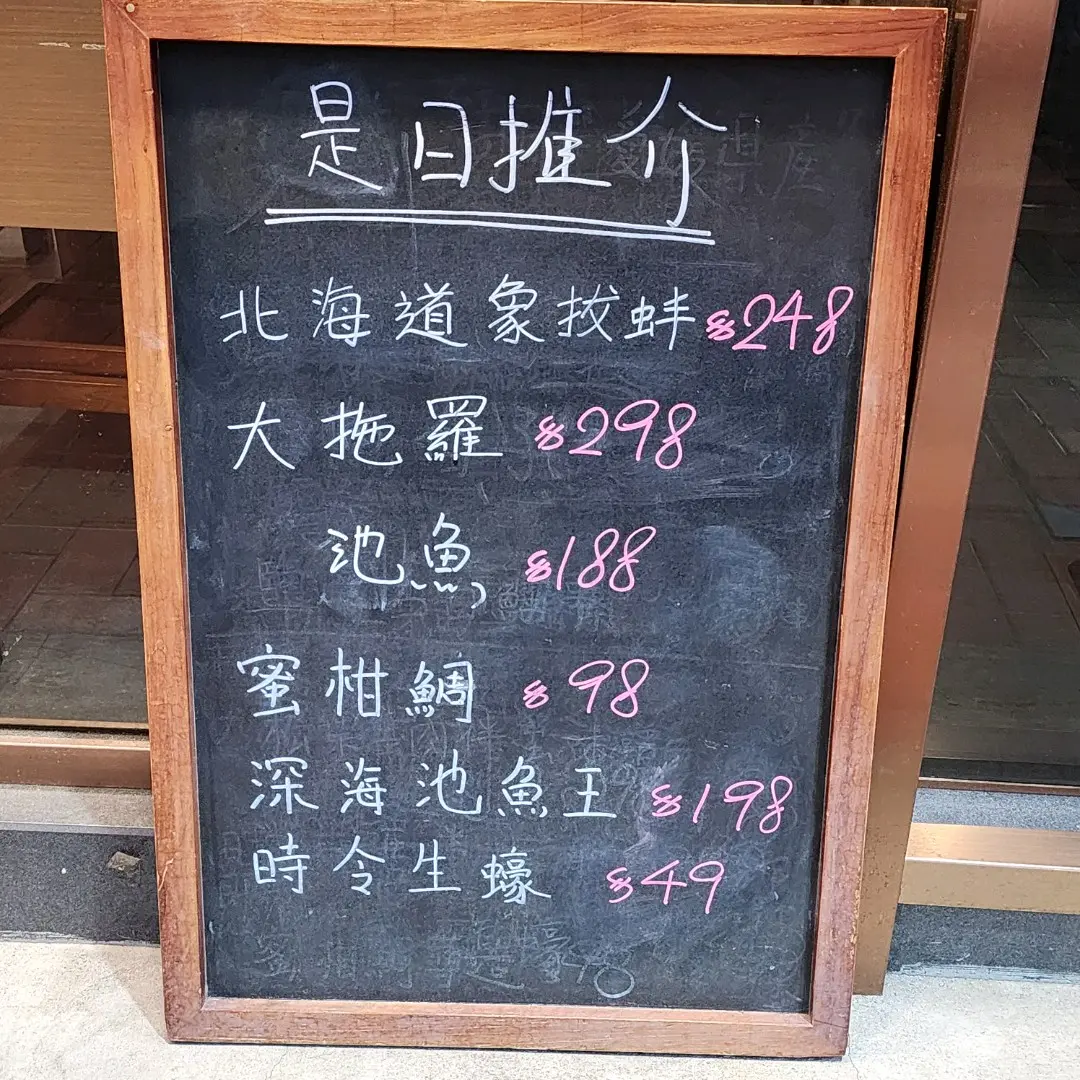 是日推介
北海道象拔蚌 $248
大拖羅 $298
池魚 $188
蜜柑鯛 $98
深海池魚王 $198
時令生蠔 $49